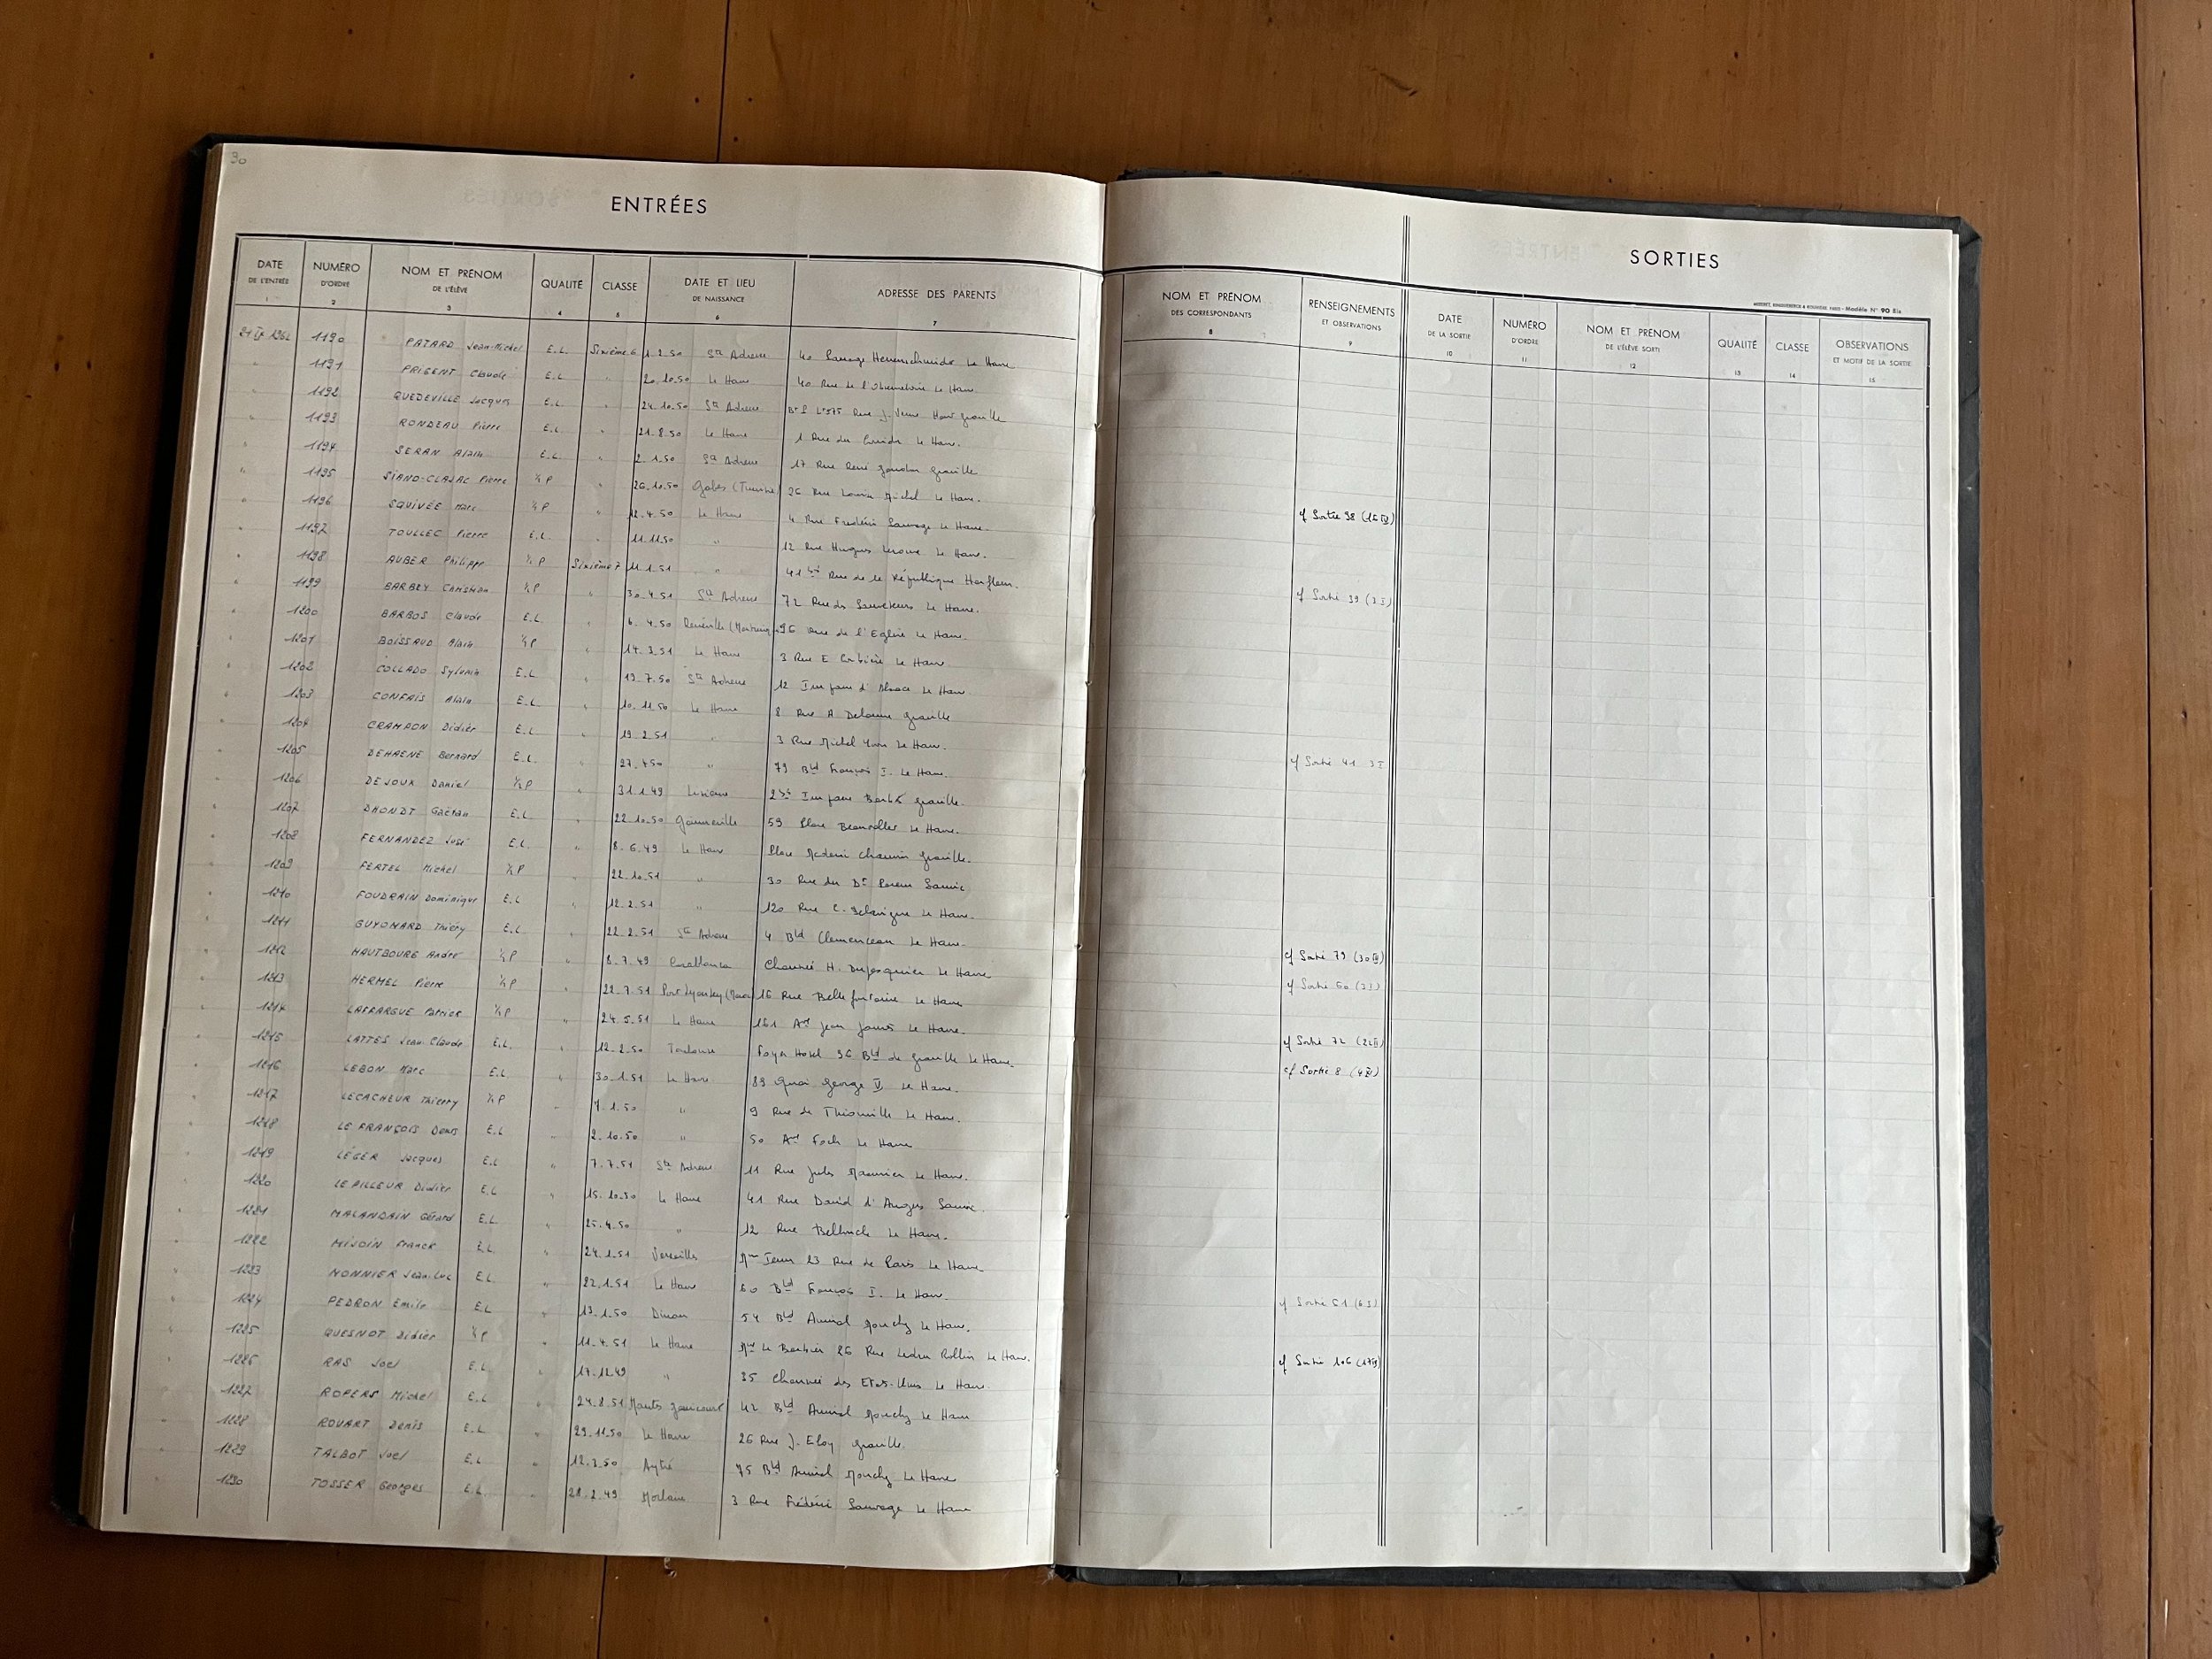 30
ENTRÉES
DATE DE L'ENTRÉE 1 NUMÉRO D'ORDRE 2 NOM ET PRÉNOM DE L'ÉLÈVE 3 QUALITÉ 4 CLASSE 5 DATE ET LIEU DE NAISSANCE 6 ADRESSE DES PARENTS 7
1190 PATARD Jean-Michel E.L. Sixième 6 1.2.50 Ste Adresse 40 Passage Le Havre
" 1191 PRIGENT Claude E.L " 20.10.50 Le Havre 40 Rue de l'Observatoire Le Havre
" 1192 QUEDEVILLE Jacques E.L " 24.10.50 Ste Adresse Rue J. Verne Graville
" 1193 RONDEAU Pierre E.L " 21.8.50 Le Havre 1 Rue du Le Havre.
" 1194 SERAN Alain E.L " 2.1.50 Ste Adresse 17 Rue René Graville
" 1195 SIAND-CLAJAC Pierre ½ P " 26.10.50 Gabès (Tunisie) 26 Rue Louise Michel Le Havre.
" 1196 SQUIVÉE Marc ½ P " 12.4.50 Le Havre 4 Rue Frédéric Sauvage Le Havre.
" 1197 TOULLEC Pierre E.L " 11.11.50 " 12 Rue Hugues Le Havre.
" 1198 AUBER Philippe ½ P Sixième 7 11.1.51 " 41 bis Rue de la République Harfleur.
" 1199 BARBEY Christian ½ P " 30.4.51 Ste Adresse 72 Rue des Sauveteurs Le Havre.
" 1200 BARBOS Claude E.L. " 6.4.50 96 Rue de l'Eglise Le Havre.
" 1201 BOISSAUD Alain ½ P " 14.3.51 Le Havre 3 Rue E Corbière Le Havre
" 1202 COLLADO Sylvain E.L " 19.7.50 Ste Adresse 12 Impasse d'Alsace Le Havre
" 1203 CONFAIS Alain E.L " 10.11.50 Le Havre 8 Rue A Delaune Graville
" 1204 CRAMPON Didier E.L " 19.2.51 " 3 Rue Michel Yvon Le Havre.
" 1205 DEHAENE Bernard E.L. " 27.4.50 " 79 Bld François I. Le Havre.
" 1206 DEJOUX Daniel ½ P " 31.1.49 Lisieux 2 bis Impasse Barbès Graville.
" 1207 DHONDT Gaëtan E.L " 22.10.50 Gonneville 59 Place Le Havre.
" 1208 FERNANDEZ José E.L. " 8.6.49 Le Havre Place Graville.
" 1209 FERTEL Michel ½ P " 22.10.51 " 30 Rue du Dr Sanvic
" 1210 FOUDRAIN Dominique E.L " 12.2.51 " 120 Rue C. Delavigne Le Havre.
" 1211 GUYOMARD Thierry E.L " 22.2.51 Ste Adresse 4 Bld Clemenceau Le Havre
" 1212 HAUTBOURG André ½ P " 8.7.49 Casablanca Chaussée H. Le Havre
" 1213 HERMEL Pierre ½ P " 22.7.51 Port Lyautey (Maroc) 16 Rue Bellefontaine Le Havre
" 1214 LAFARGUE Patrick ½ P " 24.5.51 Le Havre 161 Av Jean Jaurès Le Havre.
" 1215 LATTES Jean-Claude E.L. " 12.2.50 Toulouse Foyer Hotel 96 Bld de Graville Le Havre.
" 1216 LEBON Marc E.L " 30.1.51 Le Havre 89 Quai George V, Le Havre.
" 1217 LECACHEUR Thierry ½ P " 7.1.50 " 9 Rue de Thionville Le Havre.
" 1218 LE FRANÇOIS Denis E.L " 2.10.50 " 50 Av Foch Le Havre
" 1219 LÉGER Jacques E.L " 7.7.51 Ste Adresse 11 Rue Jules Le Havre.
" 1220 LE PILLEUR Didier E.L " 15.10.50 Le Havre 41 Rue David d'Angers Sanvic.
" 1221 MALANDAIN Gérard E.L " 25.4.50 " 12 Rue Le Havre.
" 1222 MIJOIN Franck E.L " 24.1.51 Versailles 23 Rue de Paris Le Havre
" 1223 MONNIER Jean-Luc E.L " 22.1.51 Le Havre 60 Bld François I. Le Havre.
" 1224 PEDRON Emile E.L " 13.1.50 Dinan 54 Bld Amiral Mouchez Le Havre.
" 1225 QUESNOT Didier ½ P " 11.4.51 Le Havre Le Barbier 26 Rue Ledru Rollin Le Havre.
" 1226 RAS Joel E.L. " 17.12.49 " 35 Chaussée des Etats-Unis Le Havre
" 1227 ROPERS Michel E.L " 24.8.51 42 Bld Amiral Mouchez Le Havre
" 1228 ROUART Denis E.L " 29.11.50 Le Havre 26 Rue J. Eloy Graville.
" 1229 TALBOT Joel E.L " 12.3.50 Aytré 75 Bld Amiral Mouchez Le Havre
1230 TOSSER Georges E.L " 28.2.49 Morlaix 3 Rue Frédéric Sauvage Le Havre
SORTIES
Modèle N° 90 Bis
NOM ET PRÉNOM DES CORRESPONDANTS 8 RENSEIGNEMENTS ET OBSERVATIONS 9 DATE DE LA SORTIE 10 NUMÉRO D'ORDRE 11 NOM ET PRÉNOM DE L'ÉLÈVE SORTI 12 QUALITÉ 13 CLASSE 14 OBSERVATIONS ET MOTIF DE LA SORTIE 15
cf Sortie 98
cf Sortie 39
cf Sortie 41 3 I
cf Sortie 79
cf Sortie 60
cf Sortie 72
cf Sortie 8
cf Sortie 61
cf Sortie 106